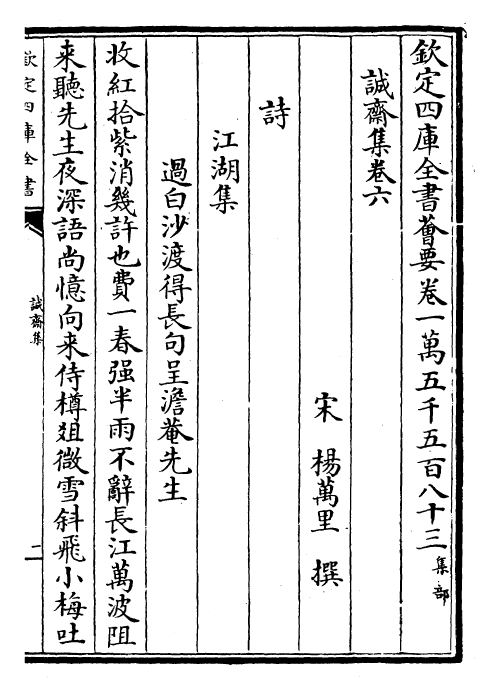 欽定四庫全書薈要卷一萬五千五百八十三集部
誠齋集卷六
宋 楊萬里 撰
詩
江湖集
過白沙渡得長句呈澹菴先生
收紅拾紫消幾許也費一春强半雨不辭長江萬波阻
来聽先生夜深語尚憶向来侍樽俎微雪斜飛小梅吐
欽定四庫全書
誠齋集
二